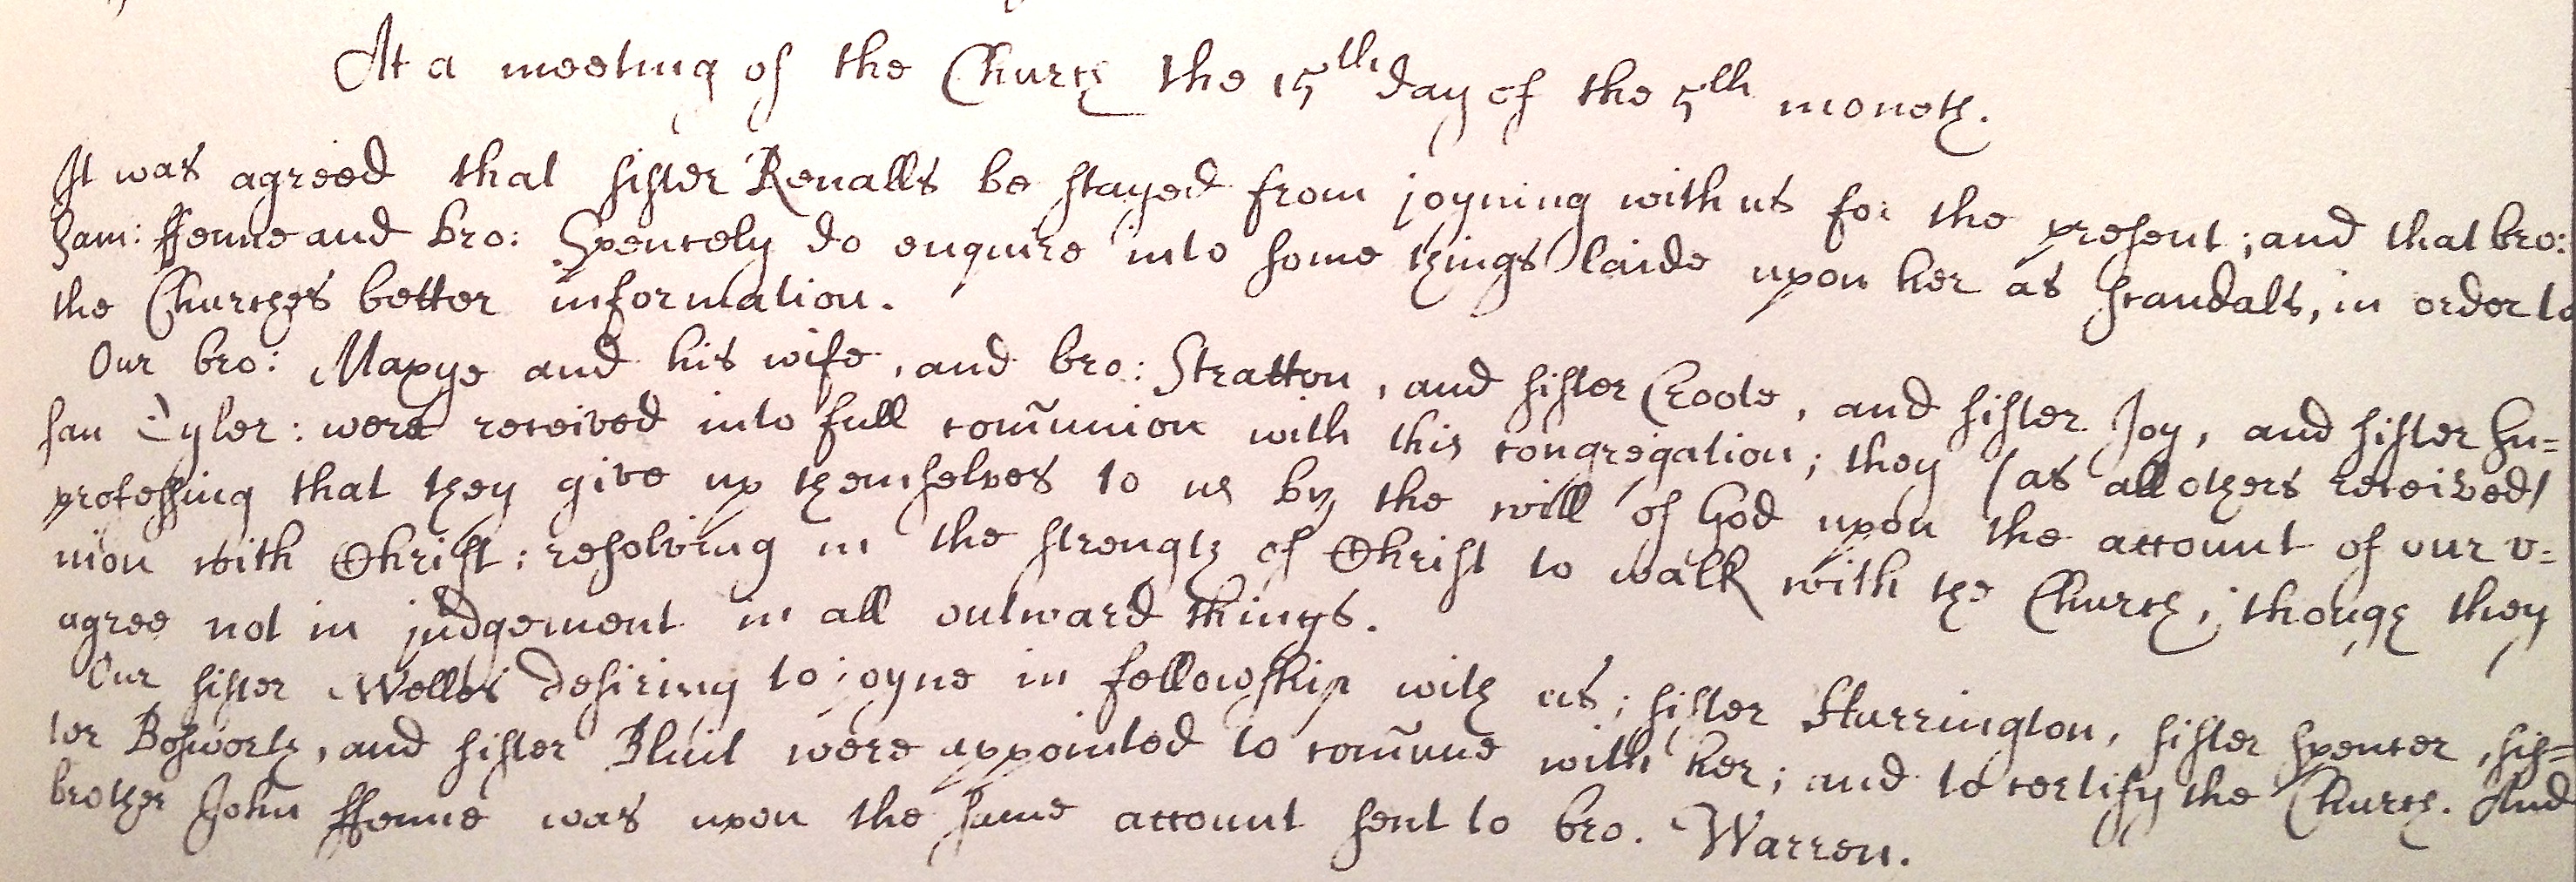 At a meeting of the Church the 15th day of the 5th moneth.
It was agreed that sister Renalls be stayed from joyning with us for the present; and that bro:
Sam: ffenne and bro: Spencely do enquire into some things laide upon her as scandals, in order to
the Churches better information.
Our bro: Maxye and his wife, and bro: Stratton, and sister Croote, and sister Joy, and sister Su=
san Tyler: were received into full com̃union with this congregation; they (as all others received)
professing that they give up themselves to us by the will of God upon the account of our v=
nion with Christ: resolving in the strength of Christ to walk with the Church, though they
agree not in judgement in all outward things.
Our sister Welles desiring to joyne in fellowship with us; sister Sturrington, sister Spencer, sis=
ter Bosworth, and sister Blint were appointed to com̃une with her; and to certify the Church. And
brother John ffenne was upon the same account sent to bro. Warren.